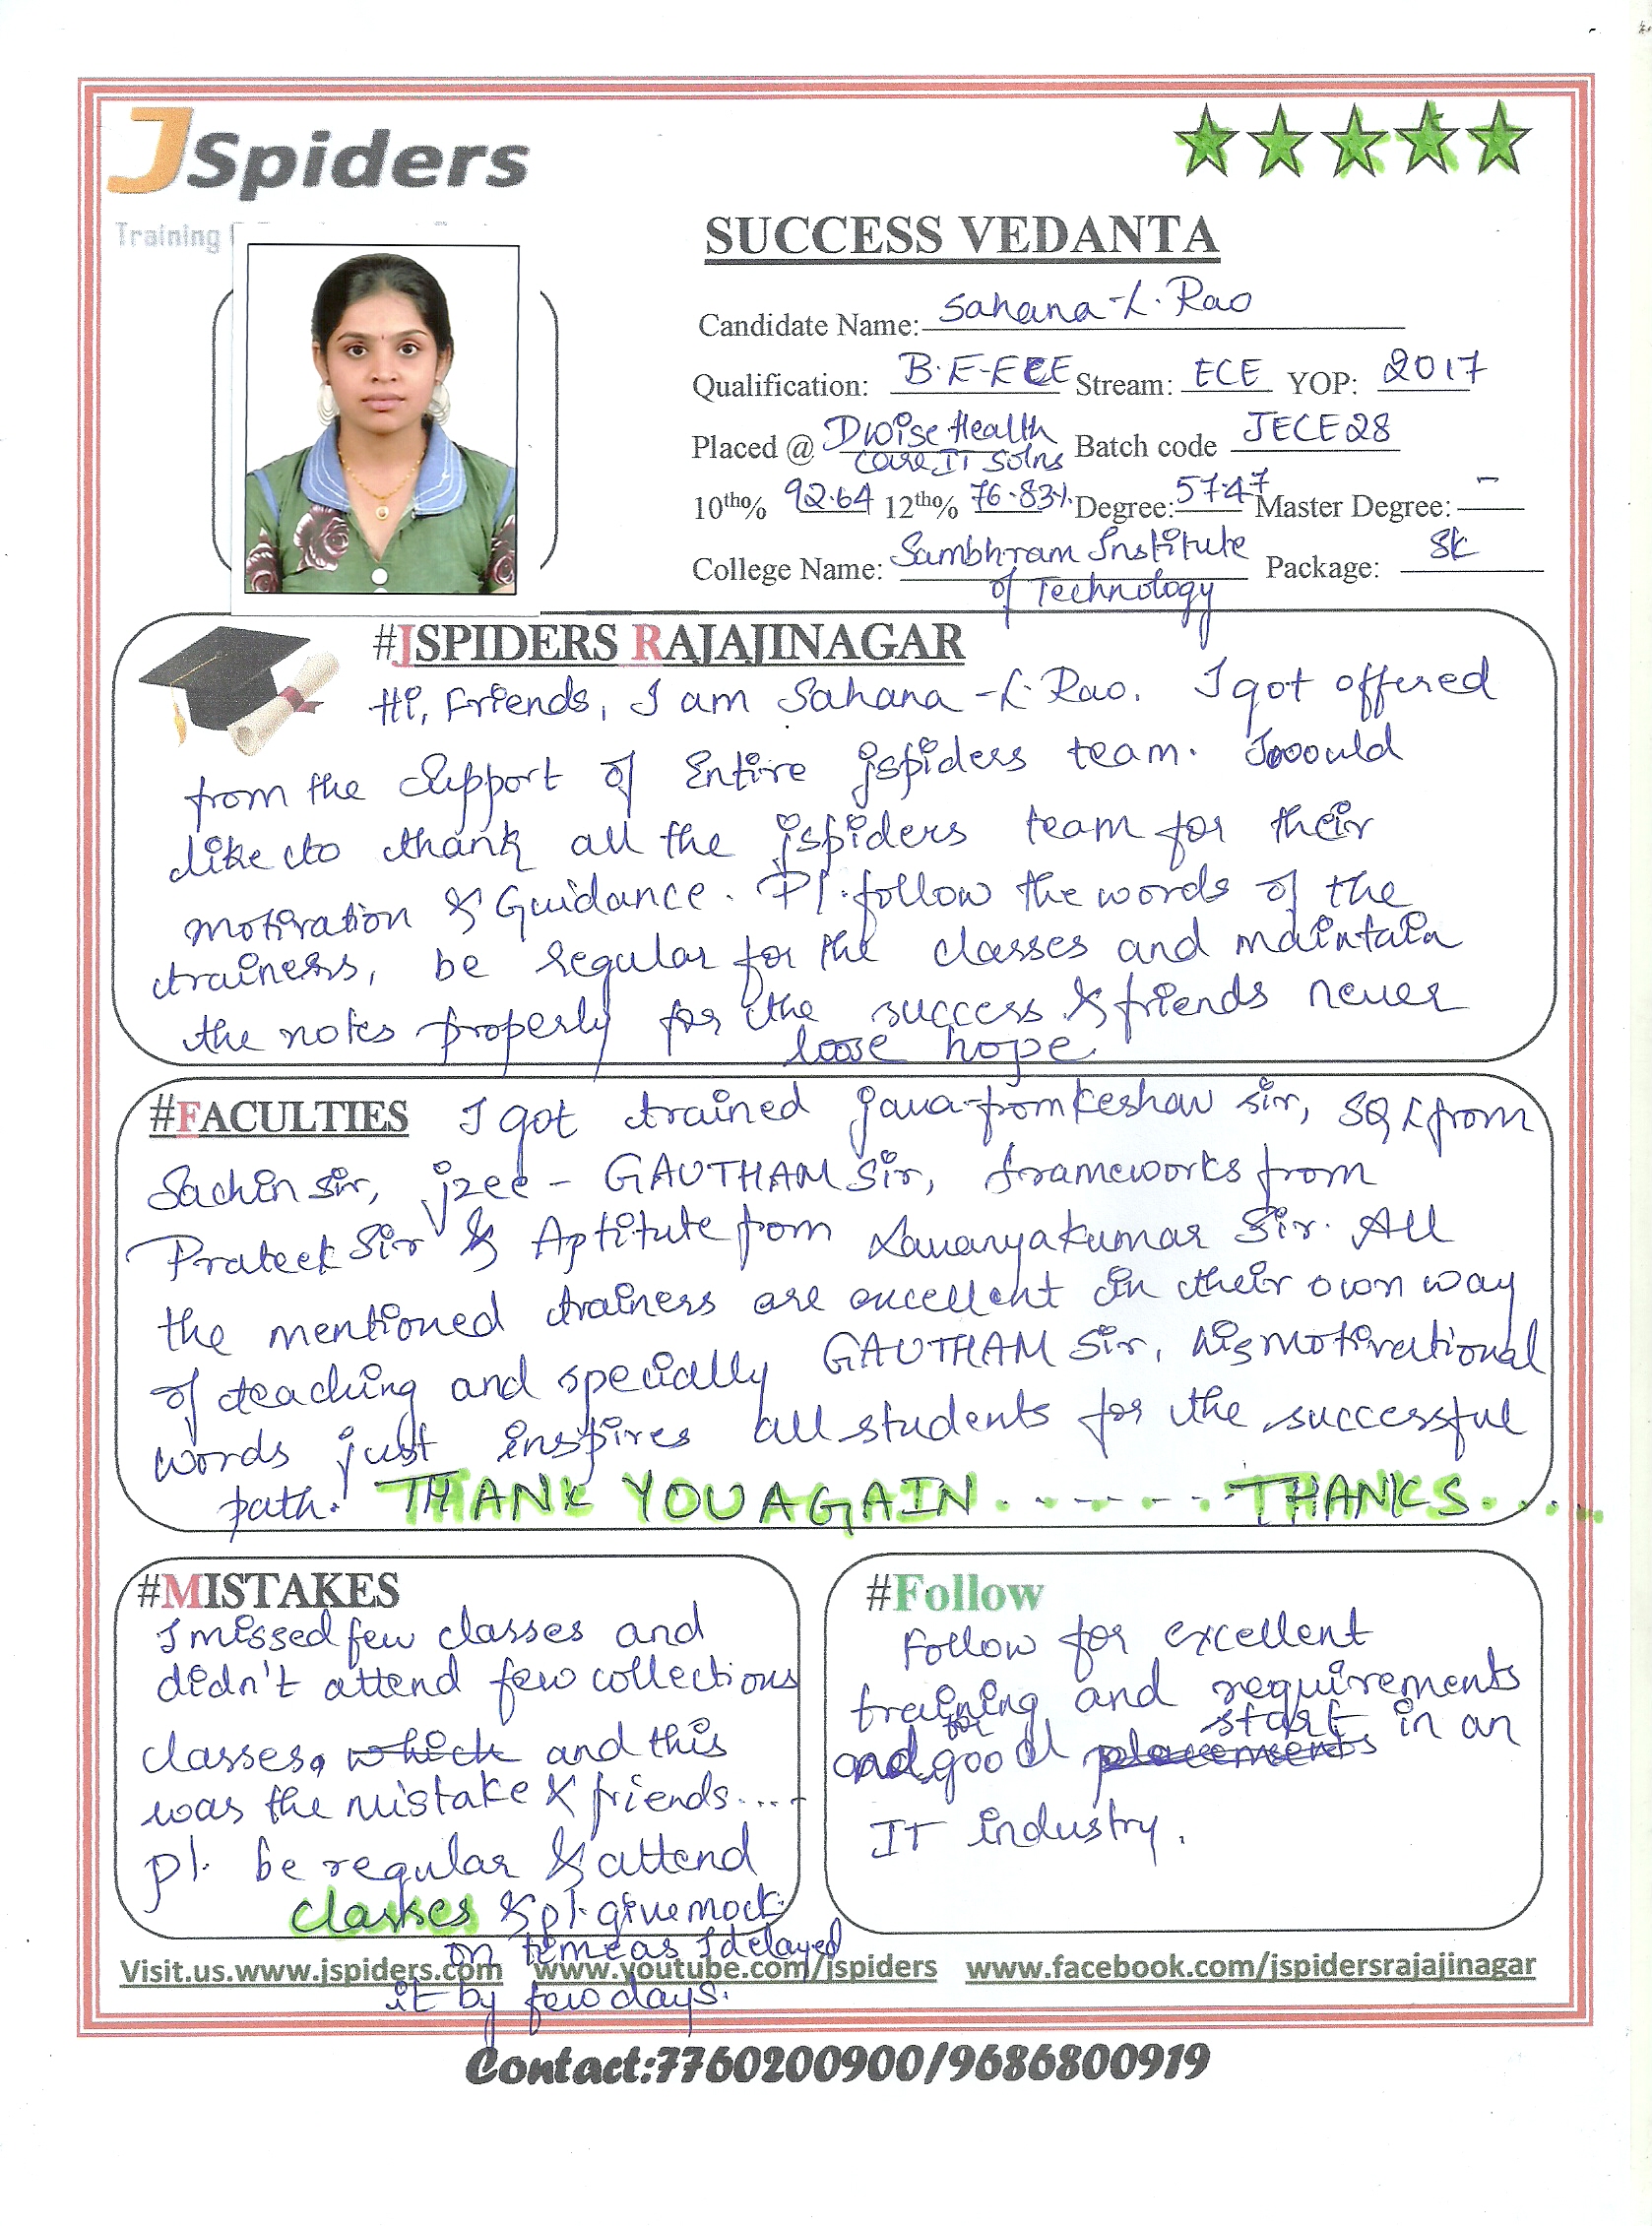 JSpiders
Training
SUCCESS VEDANTA
Candidate Name: Sahana-L.Rao
Qualification: B.E-ECE Stream: ECE YOP: 2017
Placed @ Dwise Health Care IT Solns Batch code JECE28
10th% 92.64 12th% 76.83%. Degree: 57.47 Master Degree: -
College Name: Sambhram Institute of Technology Package: 8k
#JSPIDERS RAJAJINAGAR
Hi, Friends, I am Sahana-L.Rao. I got offered
from the support of Entire jspiders team. I would
like to thank all the jspiders team for their
motivation & Guidance. Pl. follow the words of the
trainers, be regular for the classes and maintain
the notes properly for the success & friends never
loose hope.
#FACULTIES I got trained java from Keshav sir, SQL from
Sachin sir, j2ee - GAUTHAM Sir, frameworks from
Prateek Sir & Aptitute from Lavanyakumar Sir. All
the mentioned trainers are excellent in their own way
of teaching and specially GAUTHAM Sir, his motivational
words just inspires all students for the successful
path. THANK YOU AGAIN.------.THANKS....
#MISTAKES
I missed few classes and
didn't attend few collections
classes, which and this
was the mistake & friends....
pl. be regular & attend
classes & pl. give mock
on time as I delayed
it by few days.
#Follow
Follow for excellent
training and requirements
and for good start in an
IT industry.
Visit.us.www.jspiders.com www.youtube.com/jspiders www.facebook.com/jspidersrajajinagar
Contact:7760200900/9686800919